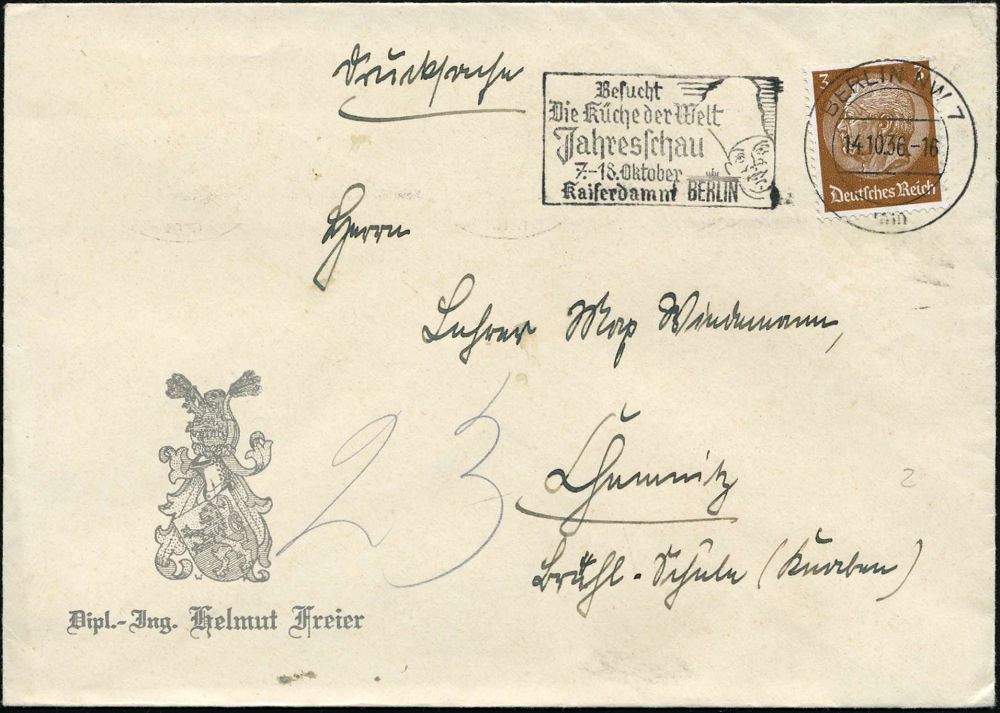 Drucksache
Besucht
Die Küche der Welt
Jahresschau
7.-18. Oktober
Kaiserdamm BERLIN
BERLIN NW 7
14.10.36.-16
3 3
Deutsches Reich
Herrn
Lehrer Max Windemann,
23
Chemnitz
2
Brühl-Schule (Knaben)
Dipl.-Ing. Helmut Freier